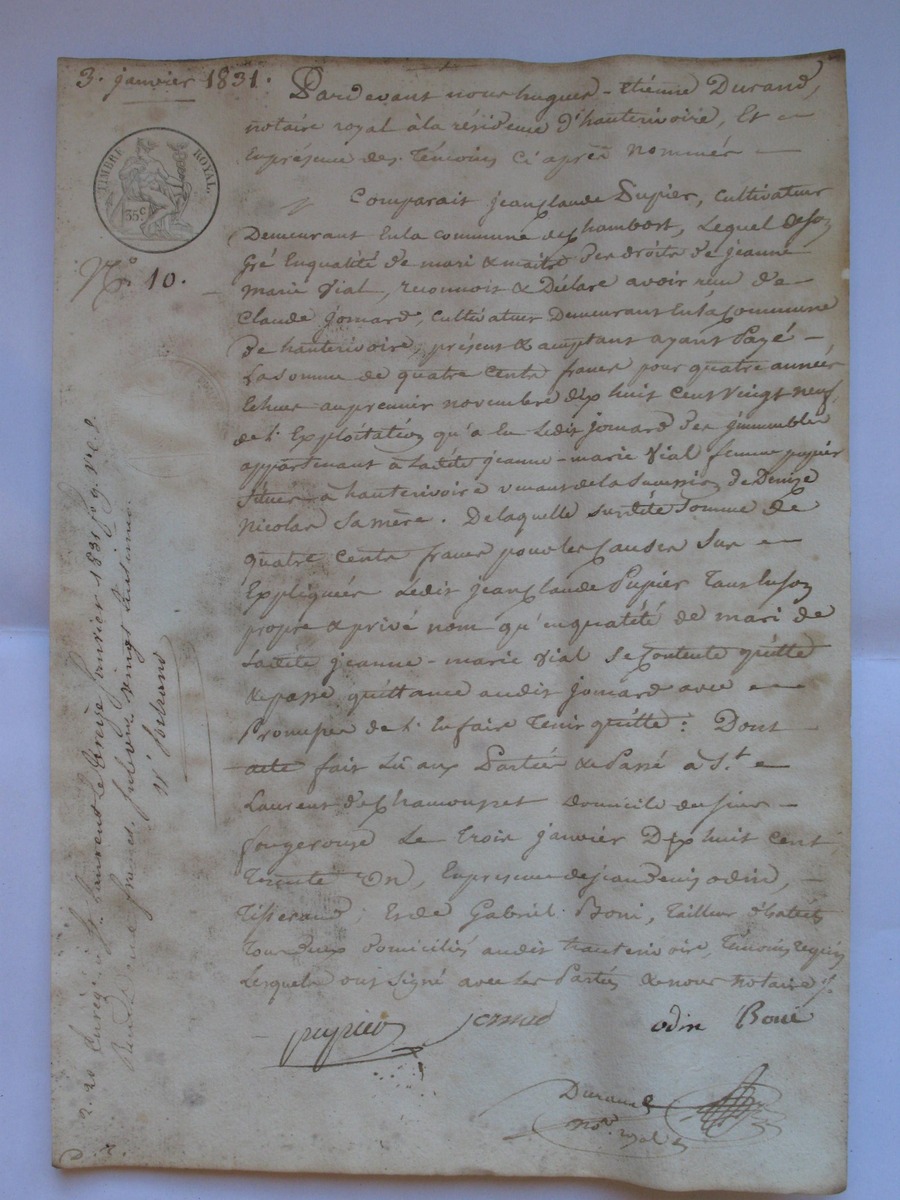 3. janvier 1831.
Pardevant nous hugues-étienne Durand,
notaire royal à la résidence d'hauterivoire, Et
En présence des Témoins Ci après nommés
TIMBRE ROYAL.
35c
No 10.
Comparait jean Claude Pupier, Cultivateur
Demeurant En la commune de Chambost, Lequel de son
gré En qualité de mari & maitre des droits de jeanne
marie Vial, reconnoit & Déclare avoir reçu de
Claude jomard, Cultivateur Demeurant En la Commune
de hauterivoire, présent & acceptant ayant Payé
La somme de quatre Cents francs pour quatre années
Echues au premier novembre dix huit Cent Vingt neuf,
de l'Exploitation qu'a Eu Ledit jomard des jmmeubles
appartenant à Ladite jeanne-marie Vial femme pupier
Situés à hauterivoire venant de la succession de Denise
Nicolas Sa mère. De laquelle Susdite Somme de
quatre Cents francs pour les Causes Sus
Expliquées Ledit jean Claude Pupier Tant En son
propre & privé nom qu'en qualité de mari de
Ladite jeanne-marie Vial Se Contente quitte
& passe quittance audit jomard avec
Promesse de l'En faire Tenir quitte: Dont
acte fait Lu aux Parties & Passé à St.
Laurent de Chamousset domicile du sieur
fougerouse Le Trois janvier Dix huit cent
Trente Un, En présence de jean Denis odin,
Tisserand, Et de Gabriel Boni, Tailleur d'habits
Tous deux domiciliés audit hauterivoire, Témoins requis
Lesquels ont Signé avec Les Parties & nous notaire
pupier jomard odin Boni
Durand
not. royal
Enregé à St. Laurent Le onze janvier 1831 fo 9. vo C. 8
Reçu deux francs. Subvon vingt Centimes.